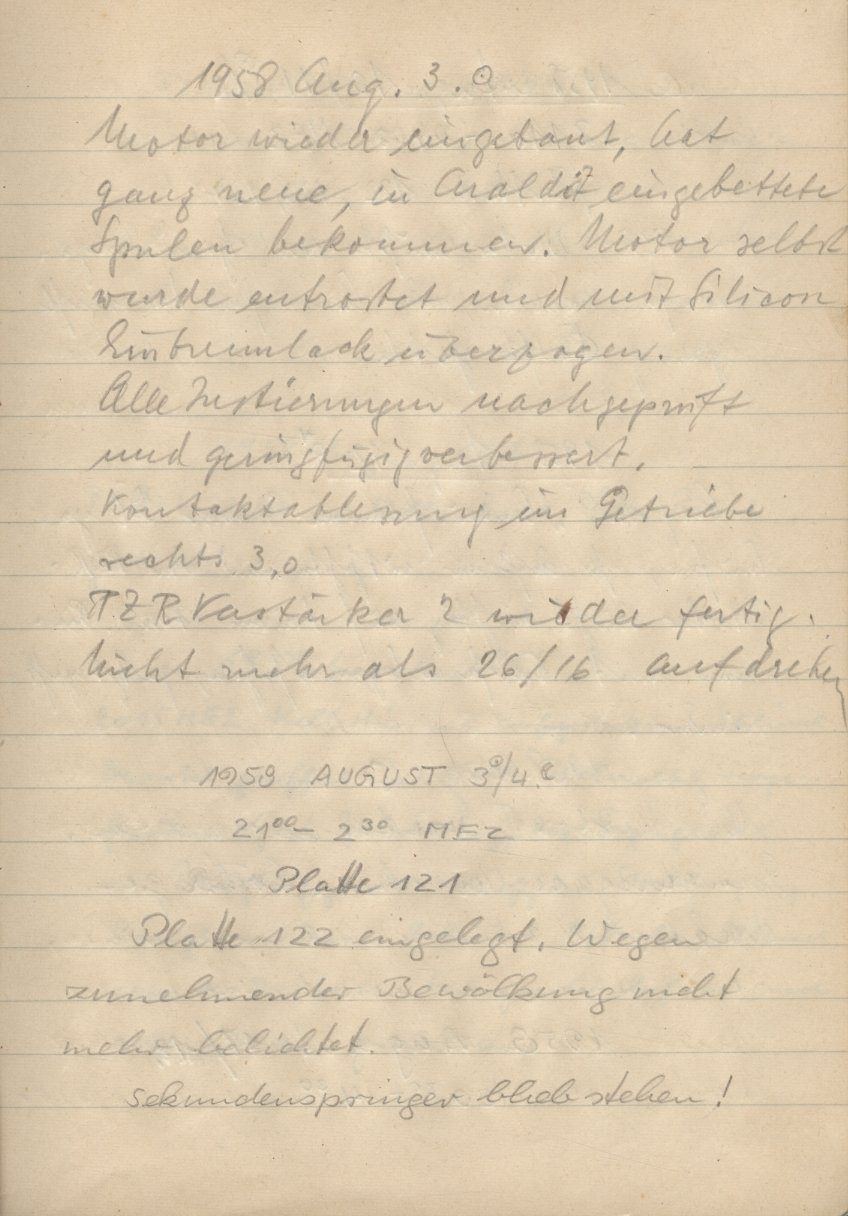 1958 Aug. 3. ⊙
Motor wieder eingebaut, hat
ganz neue, in Araldit eingebettete
Spulen bekommen. Motor selbst
wurde entrostet und mit Silicon
Einbrennlack überzogen.
Alle Justierungen nachgeprüft
und geringfügig verbessert.
Kontaktablesung im Getriebe
rechts 3,0
TZR Verstärker 2 wieder fertig.
Nicht mehr als 26/16 aufdrehen
1958 AUGUST 3⊙/4.☾
21⁰⁰– 2³⁰ MEZ
Platte 121
Platte 122 eingelegt. Wegen
zunehmender Bewölkung nicht
mehr belichtet.
Sekundenspringer blieb stehen!